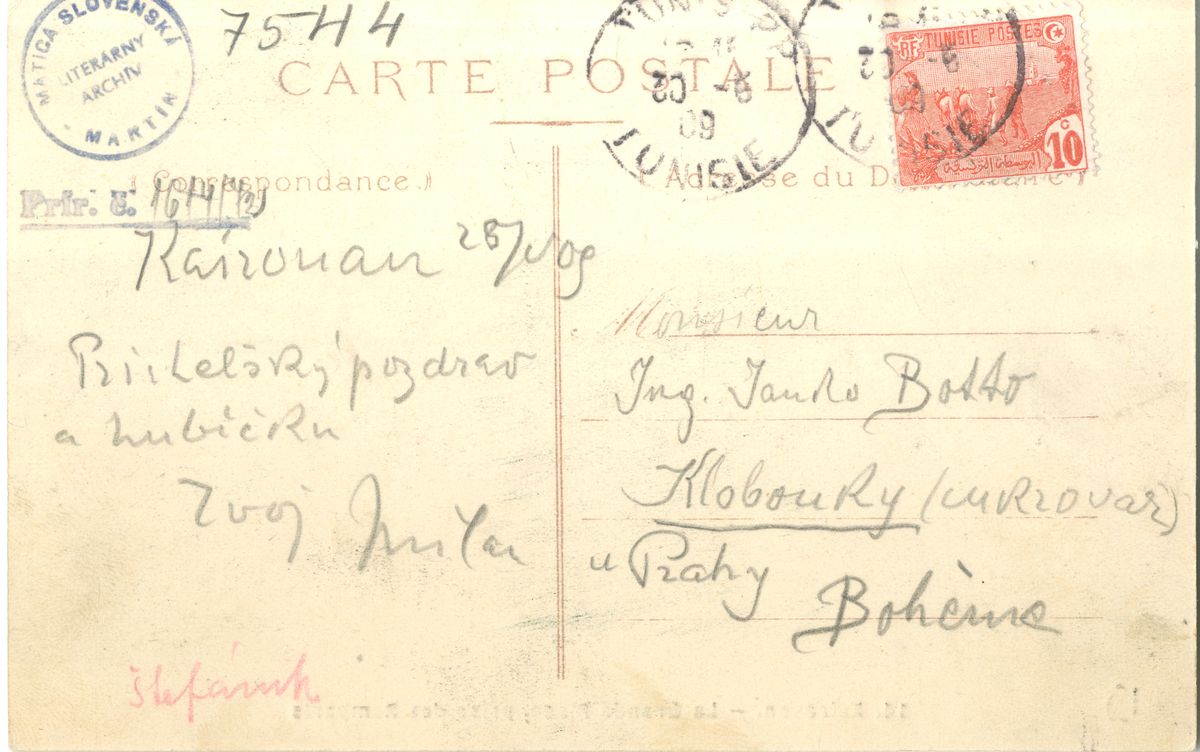 MATICA SLOVENSKÁ
LITERÁRNY
ARCHÍV
- MARTIN -
7544
CARTE POSTALE
(Correspondance.)
Prír. č.
Kairouan 28/V 09
Priatelský pozdrav
a hubičku
Tvoj Milan
Štefánik
TUNIS
30 -6
09
TUNISIE
30 -6
09
TUNISIE
RF TUNISIE POSTES
10 c
Adresse du D
Monsieur
Ing. Janko Botto
Klobouky (cukrovar)
u Prahy
Bohème